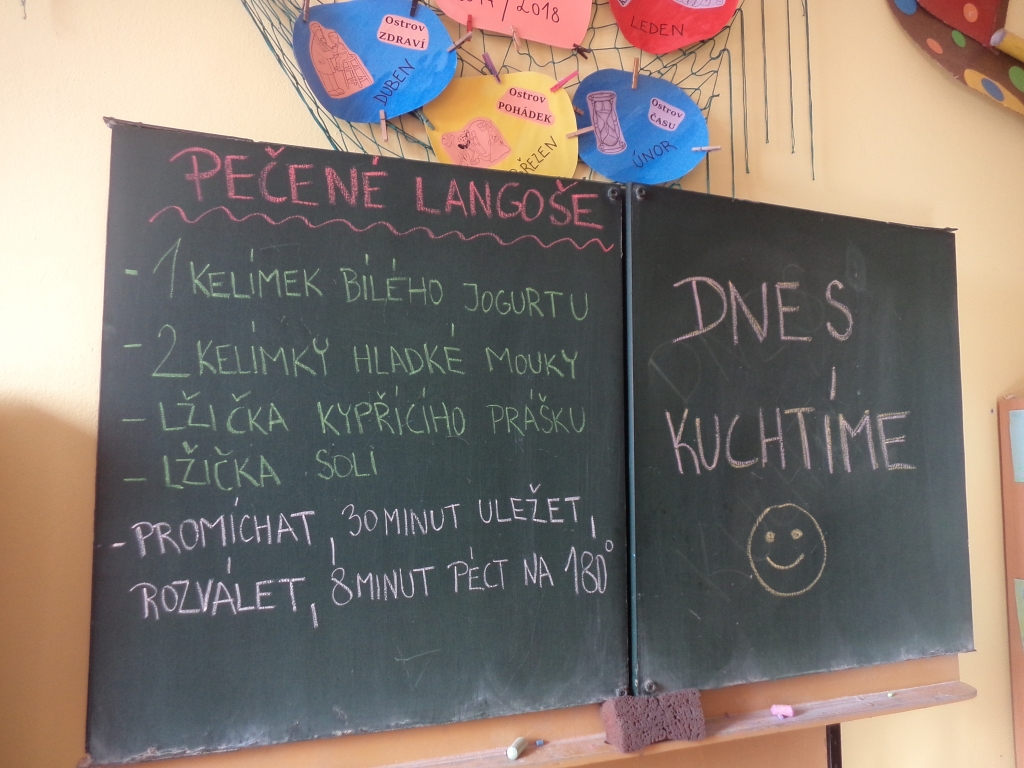 2017/2018
LEDEN
Ostrov
ZDRAVÍ
DUBEN
Ostrov
POHÁDEK
BŘEZEN
Ostrov
ČASU
ÚNOR
PEČENÉ LANGOŠE
- 1 KELÍMEK BÍLÉHO JOGURTU
- 2 KELÍMKY HLADKÉ MOUKY
- LŽIČKA KYPŘÍCÍHO PRÁŠKU
- LŽIČKA SOLI
- PROMÍCHAT, 30 MINUT ULEŽET,
ROZVÁLET, 8 MINUT PÉCT NA 180°
DNES
KUCHTÍME